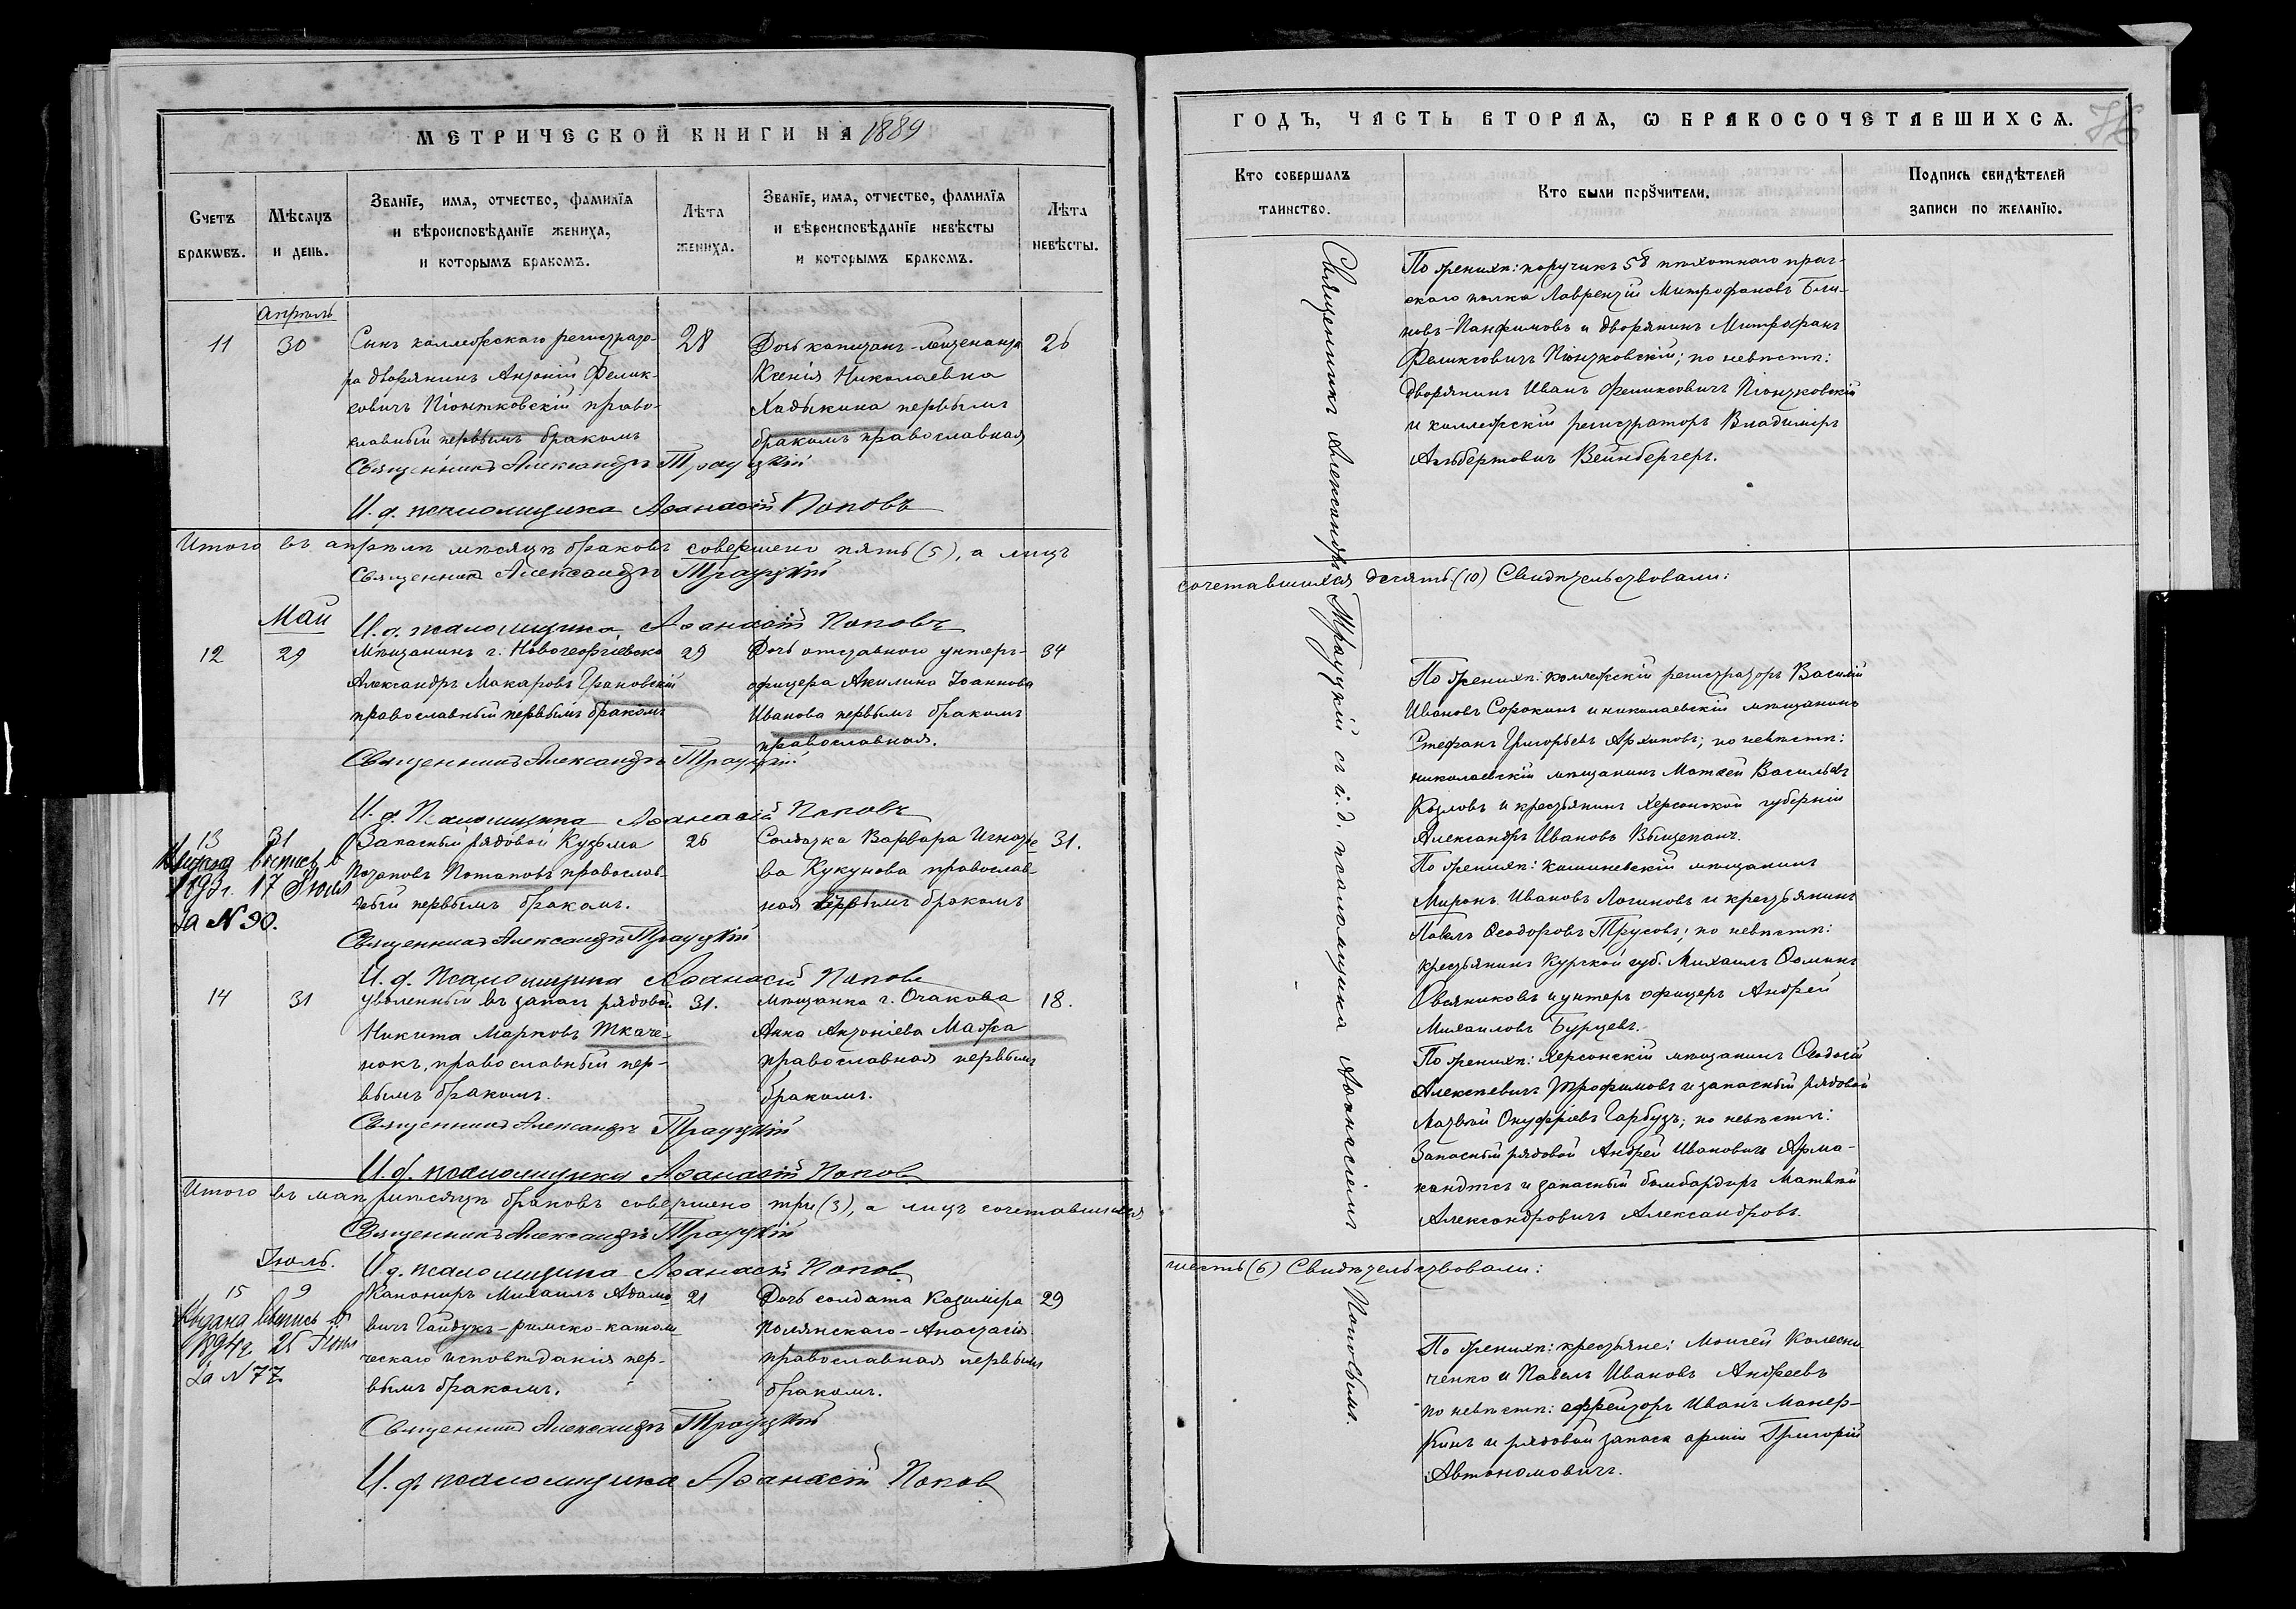 МЕТРИЧЕСКОЙ КНИГИ НА 1889
Счетъ браковъ.
Мѣсяцъ и день.
Званіе, имя, отчество, фамилія
и вѣроисповѣданіе жениха,
и которымъ бракомъ.
Лѣта
жениха.
Званіе, имя, отчество, фамилія
и вѣроисповѣданіе невѣсты
и которымъ бракомъ.
Лѣта
невѣсты.
Апрѣль
11
30
Сынъ коллежскаго регистрато-
ра дворянинъ Антоній Фелик-
совичъ Піонтковскій право-
славный первымъ бракомъ
28
Дочь капитанъ-лейтенанта
Ксенія Николаевна
Хадыкина первымъ
бракомъ православная
26
Священникъ Александръ Трауцкій
И. д. псаломщика Аѳанасій Поповъ
Итого въ апрѣлѣ мѣсяцѣ браковъ совершено пять (5), а лицъ
Священникъ Александръ Трауцкій
И. д. псаломщика Аѳанасій Поповъ
Май
12
29
Мѣщанинъ г. Новогеоргіевска
Александръ Макаровъ Грановскій
православный первымъ бракомъ
29
Дочь отставного унтеръ-
офицера Акилина Іоаннова
Иванова первымъ бракомъ
православная.
34
Священникъ Александръ Трауцкій
И. д. Псаломщика Аѳанасій Поповъ
13
31
Выдана выпись в
1893 г. 17 Іюля
за N 90.
Запасный рядовой Кузьма
Потаповъ Потаповъ православ-
ный первымъ бракомъ.
26
Солдатка Варвара Игнатье
ва Кукунова православ-
ная бракомъ
31.
Священникъ Александръ Трауцкій
И. д. Псаломщика Аѳанасій Поповъ
14
31
Уволенный въ запасъ рядовой
Никита Марковъ Ткаче-
нокъ, православный пер-
вымъ бракомъ.
31.
Мѣщанка г. Очакова
Анна Антоніева Мажа
православная первымъ
бракомъ.
18.
Священникъ Александръ Трауцкій
И. д. псаломщика Аѳанасій Поповъ
Итого въ маѣ мѣсяцѣ браковъ совершено три (3), а лицъ сочетавшихся
Священникъ Александръ Трауцкій
И. д. псаломщика Аѳанасій Поповъ
Іюль.
15
9
Выдана выпись в
1894 г. 25
за N 77
Канониръ Михаилъ Адамо
вичъ Гайдукъ - римско-католи
ческаго исповѣданія пер-
вымъ бракомъ.
21
Дочь солдата Казиміра
Полянскаго - Анастасія
православная первымъ
бракомъ.
29
Священникъ Александръ Трауцкій
И. д. псаломщика Аѳанасій Поповъ
ГОДЪ, ЧАСТЬ ВТОРАЯ, Ѡ БРАКОСОЧЕТАВШИХСЯ.
Кто совершалъ
таинство.
Кто были порꙋчители.
Подпись свидѣтелей
записи по желанію.
Священникъ Александръ Трауцкій съ и. д. псаломщика Аѳанасіемъ Поповымъ.
По женихѣ: поручикъ 58 пѣхотнаго праг-
скаго полка Лаврентій Митрофановъ Бли-
новъ-Панфиловъ и дворянинъ Митрофанъ
Феликсовичъ Піонтковскій; по невѣстѣ:
дворянинъ Иванъ Феликсовичъ Піонтковскій
и коллежскій регистраторъ Владиміръ
Альбертовичъ Вейнбергеръ.
сочетавшихся десять (10) Свидѣтельствовали:
По женихѣ: коллежскій регистраторъ Василій
Ивановъ Сорокинъ и николаевскій мѣщанинъ
Стефанъ Григорьевъ Архиповъ; по невѣстѣ:
николаевскій мѣщанинъ Матѳей Васильевъ
Козловъ и крестьянинъ Херсонской губерніи
Александръ Ивановъ Выщепанъ.
По женихѣ: кишиневскій мѣщанинъ
Миронъ Ивановъ Логиновъ и крестьянинъ
Павелъ Ѳеодоровъ Трусовъ; по невѣстѣ:
крестьянинъ Курской губ. Михаилъ Ѳоминъ
Овсяниковъ и унтеръ офицеръ Андрей
Михаиловъ Бурцевъ.
По женихѣ: Херсонскій мѣщанинъ Ѳеодосій
Алексѣевичъ Трофимовъ и запасный рядовой
Матвѣй Онуфріевъ Гарбузъ; по невѣстѣ:
Запасный рядовой Андрей Ивановичъ Арма-
кандтсъ и запасный бомбардиръ Матвѣй
Александровичъ Александровъ.
шесть (6) Свидѣтельствовали:
По женихѣ: крестьяне: Моисей Колесни
ченко и Павелъ Ивановъ Андреевъ
по невѣстѣ: ефрейторъ Иванъ Манер-
кинъ и рядовой запаса арміи Григорій
Автономовичъ.